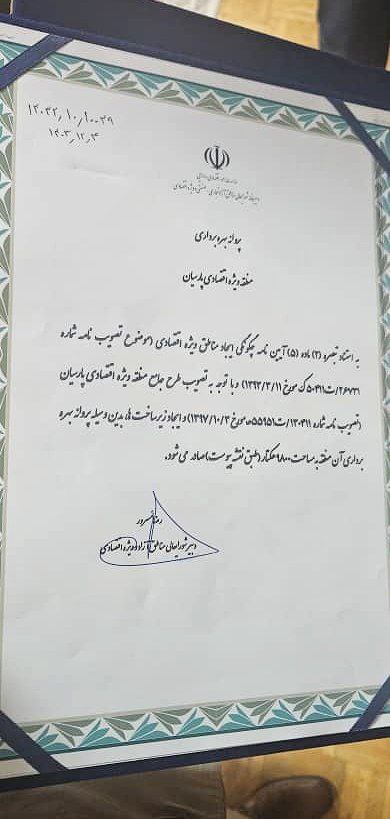 ۱۴۰۳/۱۲/۴
وزارت امور اقتصادی و دارایی
دبیرخانه شورایعالی مناطق آزاد تجاری - صنعتی و ویژه اقتصادی
پروانه بهره برداری
منطقه ویژه اقتصادی پارسیان
به استناد تبصره (۲) ماده (۵) آیین نامه چگونگی ایجاد مناطق ویژه اقتصادی (موضوع تصویب نامه شماره
۲۶۷۳۱/ت۵۰۴۱۱ک مورخ ۱۳۹۳/۳/۱۱) و با توجه به تصویب طرح جامع منطقه ویژه اقتصادی پارسیان
(تصویب نامه شماره ۱۳۰۴۱۱/ت۵۵۱۵۱ه مورخ ۱۳۹۷/۱۰/۳) و ایجاد زیرساخت ها، بدین وسیله پروانه بهره
برداری آن منطقه به مساحت ۹۸۰۰ هکتار (طبق نقشه پیوست) صادر می شود.
رضا مسرور
دبیر شورایعالی مناطق آزاد و ویژه اقتصادی